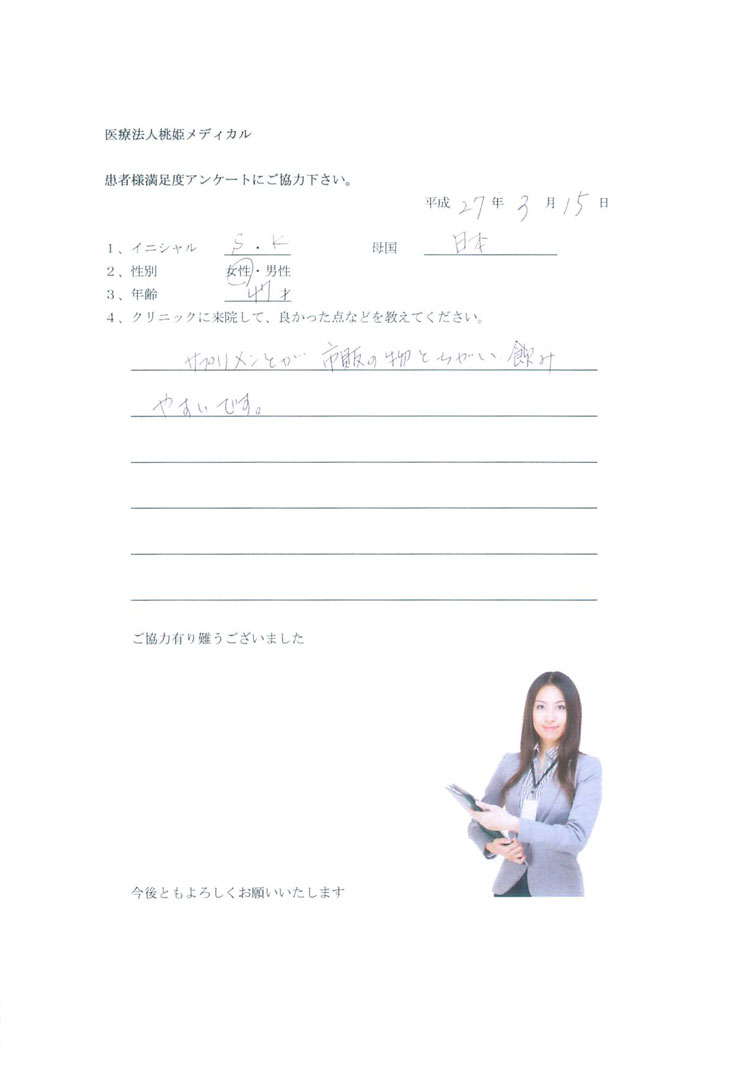 医療法人桃姫メディカル
患者様満足度アンケートにご協力下さい。
平成 27 年 3 月 15 日
1、イニシャル S . K 母国 日本
2、性別 女性・男性
3、年齢 47才
4、クリニックに来院して、良かった点などを教えてください。
サプリメントが 市販の物とちがい、飲み
やすいです。
ご協力有り難うございました
今後ともよろしくお願いいたします